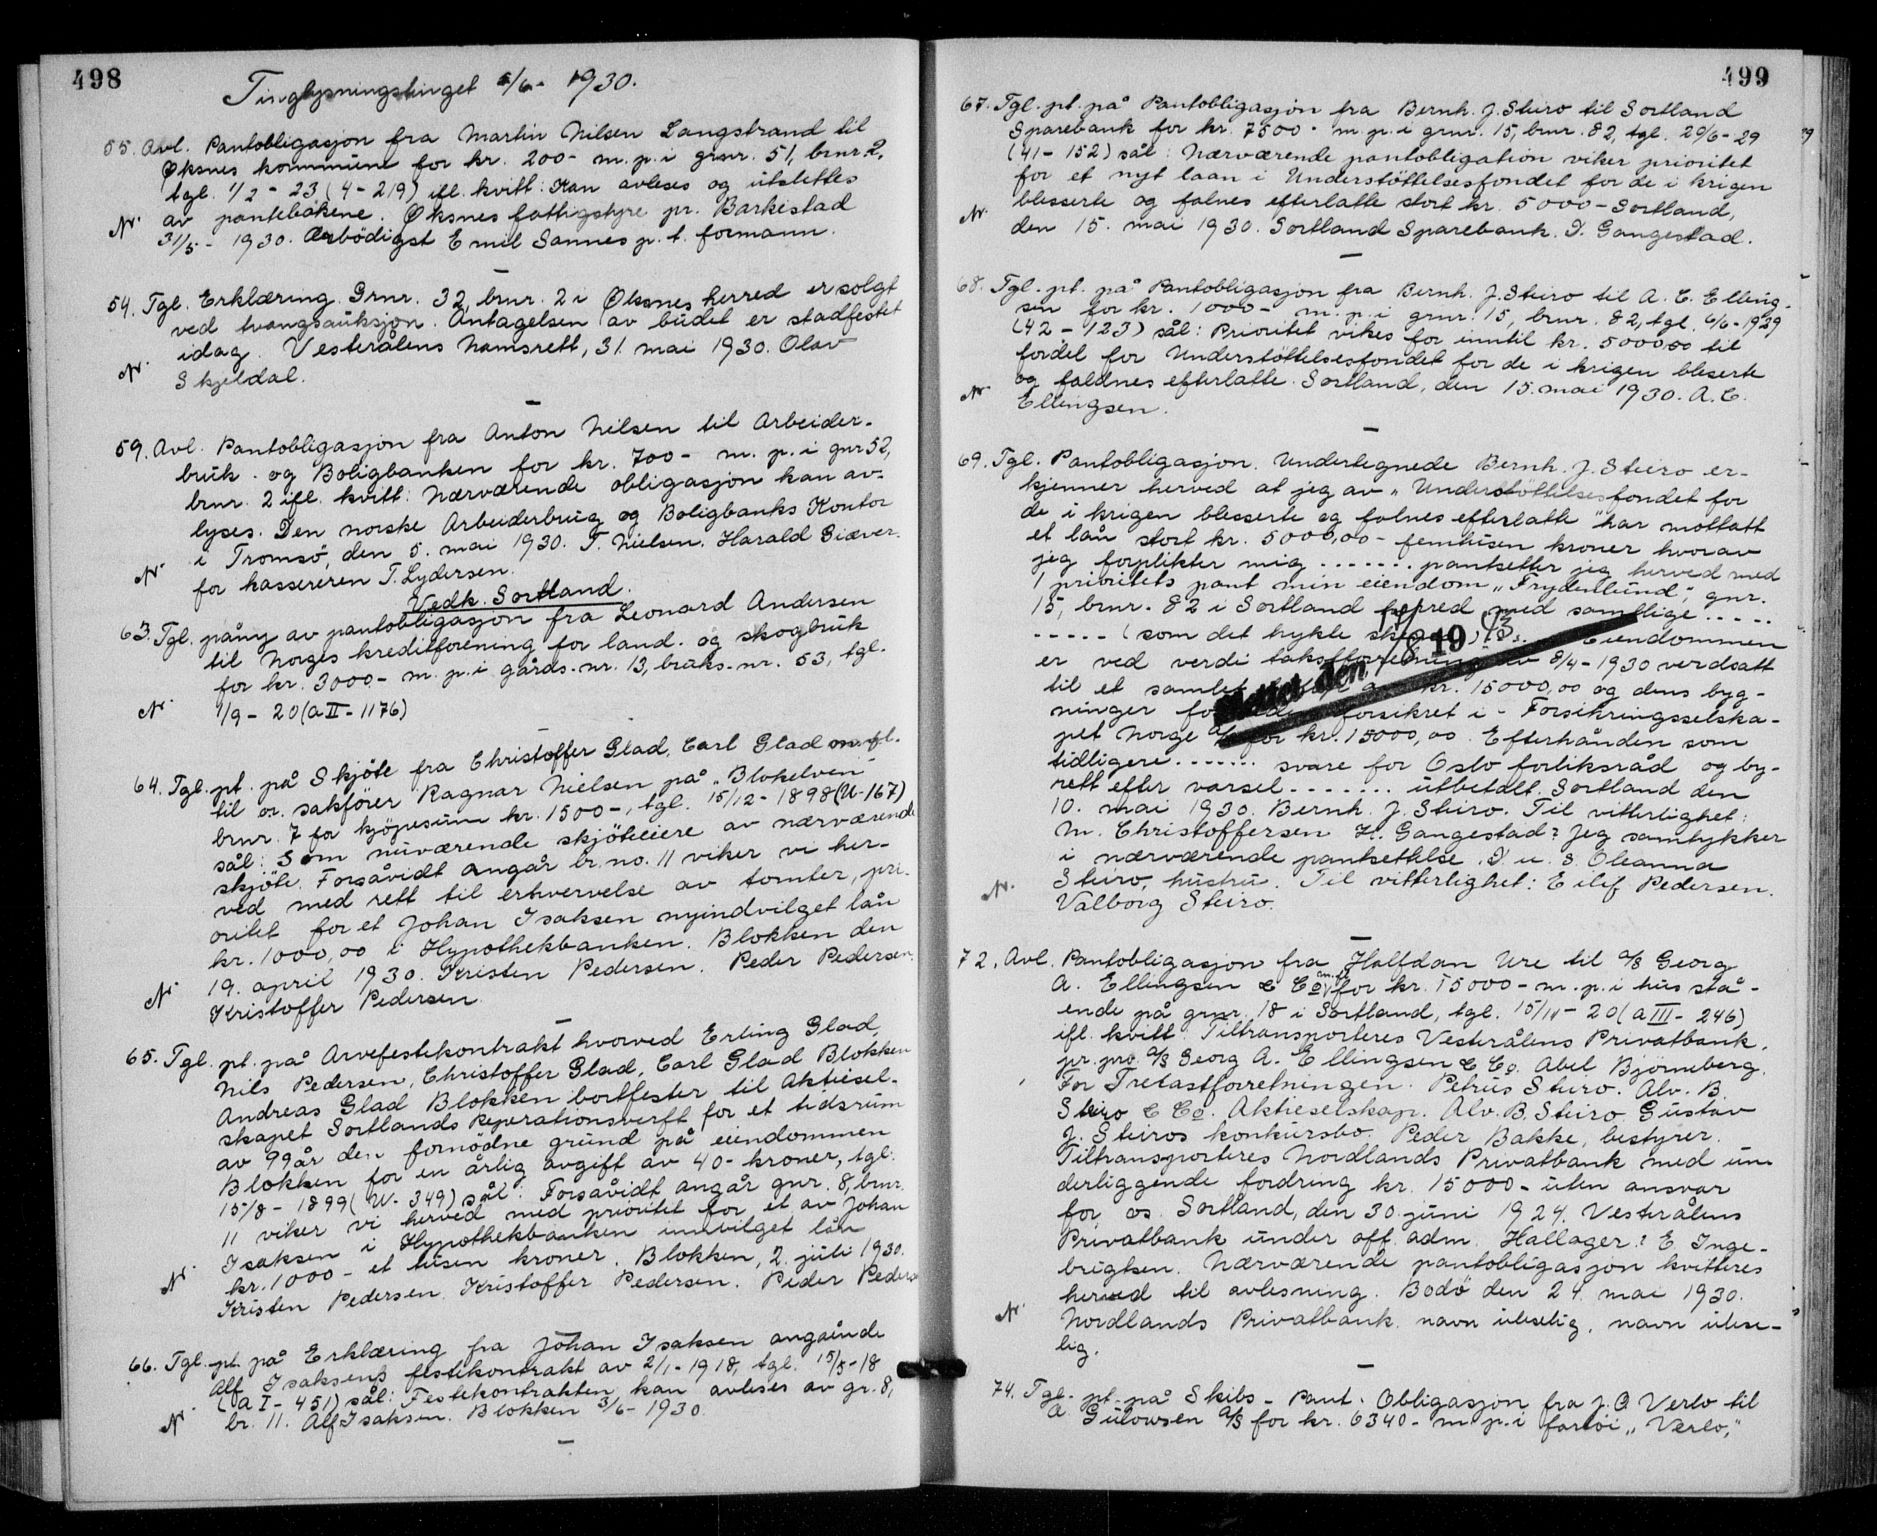 498
Tinglysningstinget 5/6- 1930.
55. Avl. Pantobligasjon fra Martin Nilsen Langstrand til
Øksnes kommune for kr. 200- m. p. i grnr. 51, brnr. 2,
tgl. 1/2 - 23 (4-219) ifl. kvitt: Kan avleses og utslettes
av pantebökene. Øksnes fattigstyre pr. Barkestad
N. 31/5 - 1930. Ærbödigst Emil Sannes p. t. formann.
54. Tgl. Erklæring. Grnr. 32, brnr. 2 i Øksnes herred er solgt
ved tvangsauksjon. Antagelsen av budet er stadfestet
idag. Vesterålens Namsrett, 31. mai 1930. Olav
N. Skjeldal.
59. Avl. Pantobligasjon fra Anton Nilsen til Arbeider-
bruk- og Boligbanken for kr. 700- m. p. i gnr 52,
brnr. 2 ifl. kvitt: Nærværende obligasjon kan av-
lyses. Den norske Arbeiderbrug og Boligbanks Kontor
i Tromsö, den 5. mai 1930. T. Nielsen. Harald Giæver.
N. for kassereren T. Lydersen.
Vedk. Sortland.
63. Tgl. påny av pantobligasjon fra Leonard Andersen
til Norges kreditforening for land- og skogbruk
for kr. 3000.- m. p. i gårds.-nr. 13, bruks.-nr. 53, tgl.
N. 1/9 - 20 (a II - 1176)
64. Tgl. pt. på Skjöte fra Christoffer Glad, Carl Glad m. fl.
til or. sakförer Ragnar Nielsen på „Blokelven"
brnr. 7 for kjöpesum kr. 1500-, tgl. 15/12 - 1898 (U-167)
sål: Som nuværende skjöteeiere av nærværende
skjöte. Forsåvidt angår br. no. 11 viker vi her-
ved med rett til erhvervelse av tomter, pri-
oritet for et Johan Isaksen nyindvilget lån
kr. 1000,00 i Hypothekbanken. Blokken den
19. april 1930. Kristen Pedersen. Peder Pedersen.
N. Kristoffer Pedersen.
65. Tgl. pt. på Arvefestekontrakt hvorved Erling Glad,
Nils Pedersen, Christoffer Glad, Carl Glad Blokken
Andreas Glad Blokken bortfester til Aktiesel-
skapet Sortlands Reperationsverft for et tidsrum
av 99 år den fornödne grund på eiendommen
Blokken for en årlig avgift av 40- kroner, tgl.
15/8 - 1899 (U- 349) sål: Forsåvidt angår gnr. 8, brnr.
11 viker vi herved med prioritet for et av Johan
Isaksen i Hypothekbanken innvilget lån
N. kr. 1000- et tusen kroner. Blokken, 2. juli 1930.
Kristen Pedersen. Kristoffer Pedersen. Peder Peders
66. Tgl. pt. på Erklæring fra Johan Isaksen angående
Alf Isaksens festekontrakt av 2/1 - 1918, tgl. 15/5 - 18
(a I - 451) sål: Festekontrakten kan avleses av gr. 8,
N. br. 11. Alf Isaksen. Blokken 3/6 - 1930.
499
67. Tgl. pt. på Pantobligasjon fra Bernh. J. Steiro til Sortland
Sparebank for kr. 7500- m. p. i grnr. 15, brnr. 82, tgl. 20/6 - 29
(41-152) sål: Nærværende pantobligation viker prioritet
for et nyt laan i Understöttelsesfondet for de i krigen
blesserte og falnes efterlatte stort kr. 5000- Sortland,
N. den 15. mai 1930. Sortland Sparebank. D. Gangestad.
68. Tgl. pt. på Pantobligasjon fra Bernh. J. Steiro til A. C. Elling-
sen for kr. 1000- m. p. i grnr. 15, brnr. 82, tgl. 6/6 - 1929
(42-123) sål: Prioritet vikes for inntil kr. 5000,00 til
fordel for Understöttelsesfondet for de i krigen bleserte
og faldnes efterlatte. Sortland, den 15. mai 1930. A. C.
N. Ellingsen.
69. Tgl. Pantobligasjon. Undertegnede Bernh. J. Steiro er-
kjenner herved at jeg av „Understöttelsesfondet for
de i krigen blesserte og falnes efterlatte" har mottatt
et lån stort kr. 5000,00- femtusen kroner hvorav
jeg forplikter mig ....... pantsetter jeg herved med
1 prioritets pant min eiendom „Frydenlund", gnr.
15, brnr. 82 i Sortland herred med samtlige .....
..... (som det trykte Eiendommen
er ved verdi takstforretning av 8/4 - 1930 verdsatt
til et samlet kr. 15000,00 og dens byg-
ninger forsikret i - Forsikringsselska-
pet Norge A/S for kr. 15000,00. Efterhånden som
tidligere ....... svare for Oslo forliksråd og by-
rett efter varsel ....... utbetalt. Sortland den
10. mai 1930. Bernh. J. Steiro. Til vitterlighet:
M. Christoffersen H. Gangestad? Jeg samtykker
i nærværende pantsettelse. D. u. s. Oleanna
N. Steiro, hustru. Til vitterlighet: Eilif Pedersen.
Valborg Steiro.
72. Avl. Pantobligasjon fra Halfdan Ure til A/S Georg
A. Ellingsen & Co m. fl. for kr. 15000- m. p. i hus stå-
ende på grnr. 18 i Sortland, tgl. 15/11 - 20 (a III - 246)
ifl. kvitt: Tiltransporteres Vesterålens Privatbank.
pr. pro. A/S Georg A. Ellingsen & Co. Abel Bjørneberg.
For Trelastforretningen. Petrus Steiro. Alv. B.
Steiro & Co. Aktieselskap. Alv. B. Steiro. Gustav
J. Steiros konkursbo. Peder Bakke, bestyrer.
Tiltransporteres Nordlands Privatbank med un-
derliggende fordring kr. 15000- uten ansvar
for os. Sortland, den 30 juni 1924. Vesterålens
Privatbank under off. adm. Hallager? E. Inge-
brigtsen. Nærværende pantobligasjon kvitteres
herved til avlesning. Bodö den 24. mai 1930.
N. Nordlands Privatbank. navn uleselig, navn ulese-
lig.
74. Tgl. pt. på Skibs - Pant - Obligasjon fra J. O. Verlo til
A. Gulowsen A/S for kr. 6340- m. p. i fartöi „Verlo,"